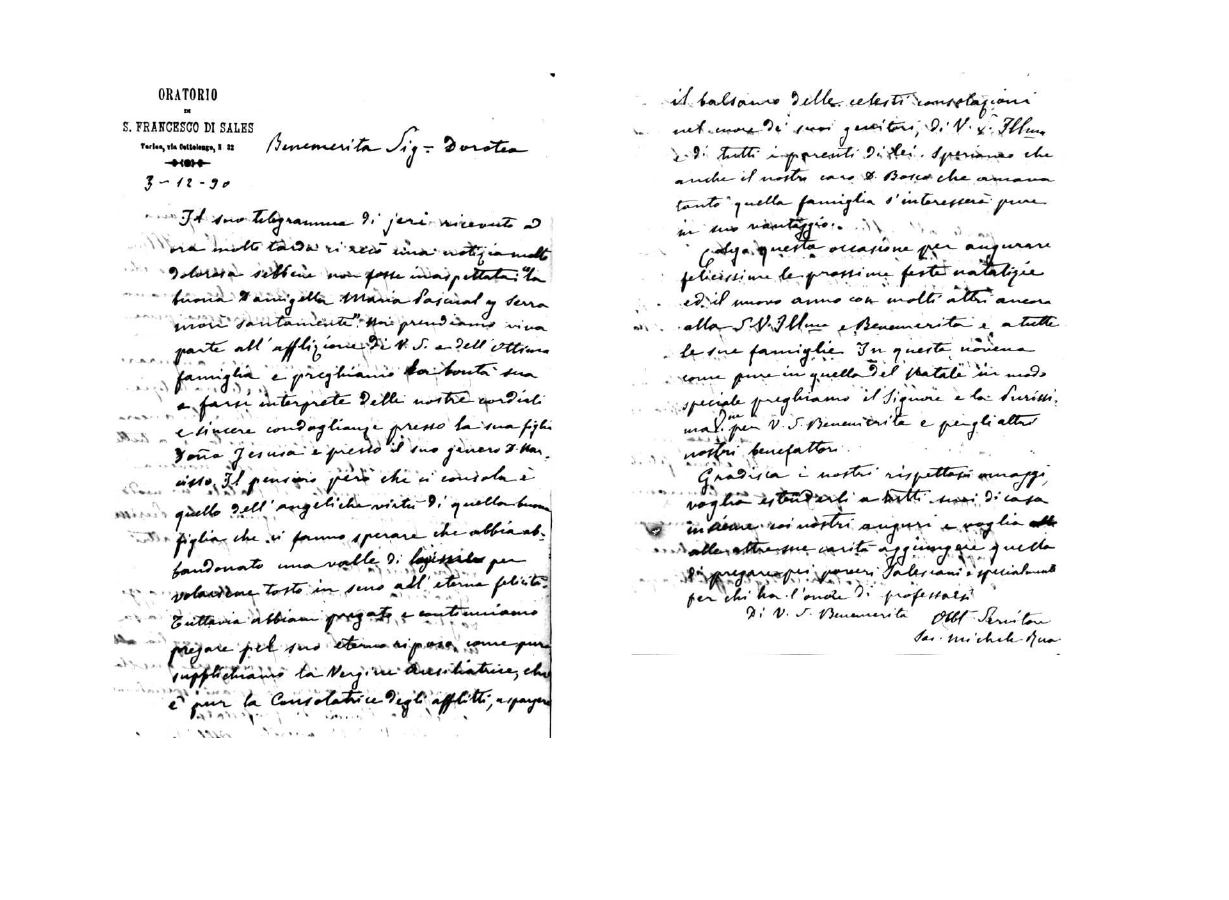 ORATORIO
DI
S. FRANCESCO DI SALES
Torino, via Cottolengo, N 32
3-12-90
Benemerita Sig.ra Dorotea
Il suo telegramma di jeri ricevuto ad
ora molto tarda ci recò una notizia molto
dolorosa sebbene non fosse inaspettata: "la
buona Damigella Maria Pascual y Serra
morì santamente". Noi prendiamo viva
parte all'afflizione di V. S. e dell'ottima
famiglia e preghiamo la bontà sua
a farsi interprete delle nostre cordiali
e sincere condoglianze presso la sua figlia
Doña Jesusa e presso il suo genero D. Nar-
ciso. Il pensiero però che ci consola è
quello dell'angeliche virtù di quella buona
figlia che ci fanno sperare che abbia ab-
bandonato una valle di lagrime per
volarsene tosto in seno all'eterna felicità
Tuttavia abbiam pregato e continuiamo
pregare pel suo eterno riposo, come pure
supplichiamo la Vergine Ausiliatrice, che
è pur la Consolatrice degli afflitti, a spargere
il balsamo delle celesti consolazioni
nel cuore de' suoi genitori, di V. S. Ill.ma
e di tutti i parenti di lei. Speriamo che
anche il nostro caro D. Bosco che amava
tanto quella famiglia s'interesserà pure
in suo vantaggio.
Colgo questa occasione per augurare
felicissime le prossime feste natalizie
ed il nuovo anno con molti altri ancora
alla S. V. Ill.ma e Benemerita e a tutte
le sue famiglie. In questa novena
come pure in quella del Natale in modo
speciale preghiamo il Signore e la Purissi-
ma per V. S. Benemerita e per gli altri
nostri benefattori.
Gradisca i nostri rispettosi omaggi,
voglia estenderli a tutti suoi di casa
insieme coi nostri auguri e voglia
alle altre sue carità aggiungere quella
di pregare pei poveri Salesiani e specialmente
per chi ha l'onore di professarsi
Di V. S. Benemerita
Obbl. Servitore
Sac. Michele Rua